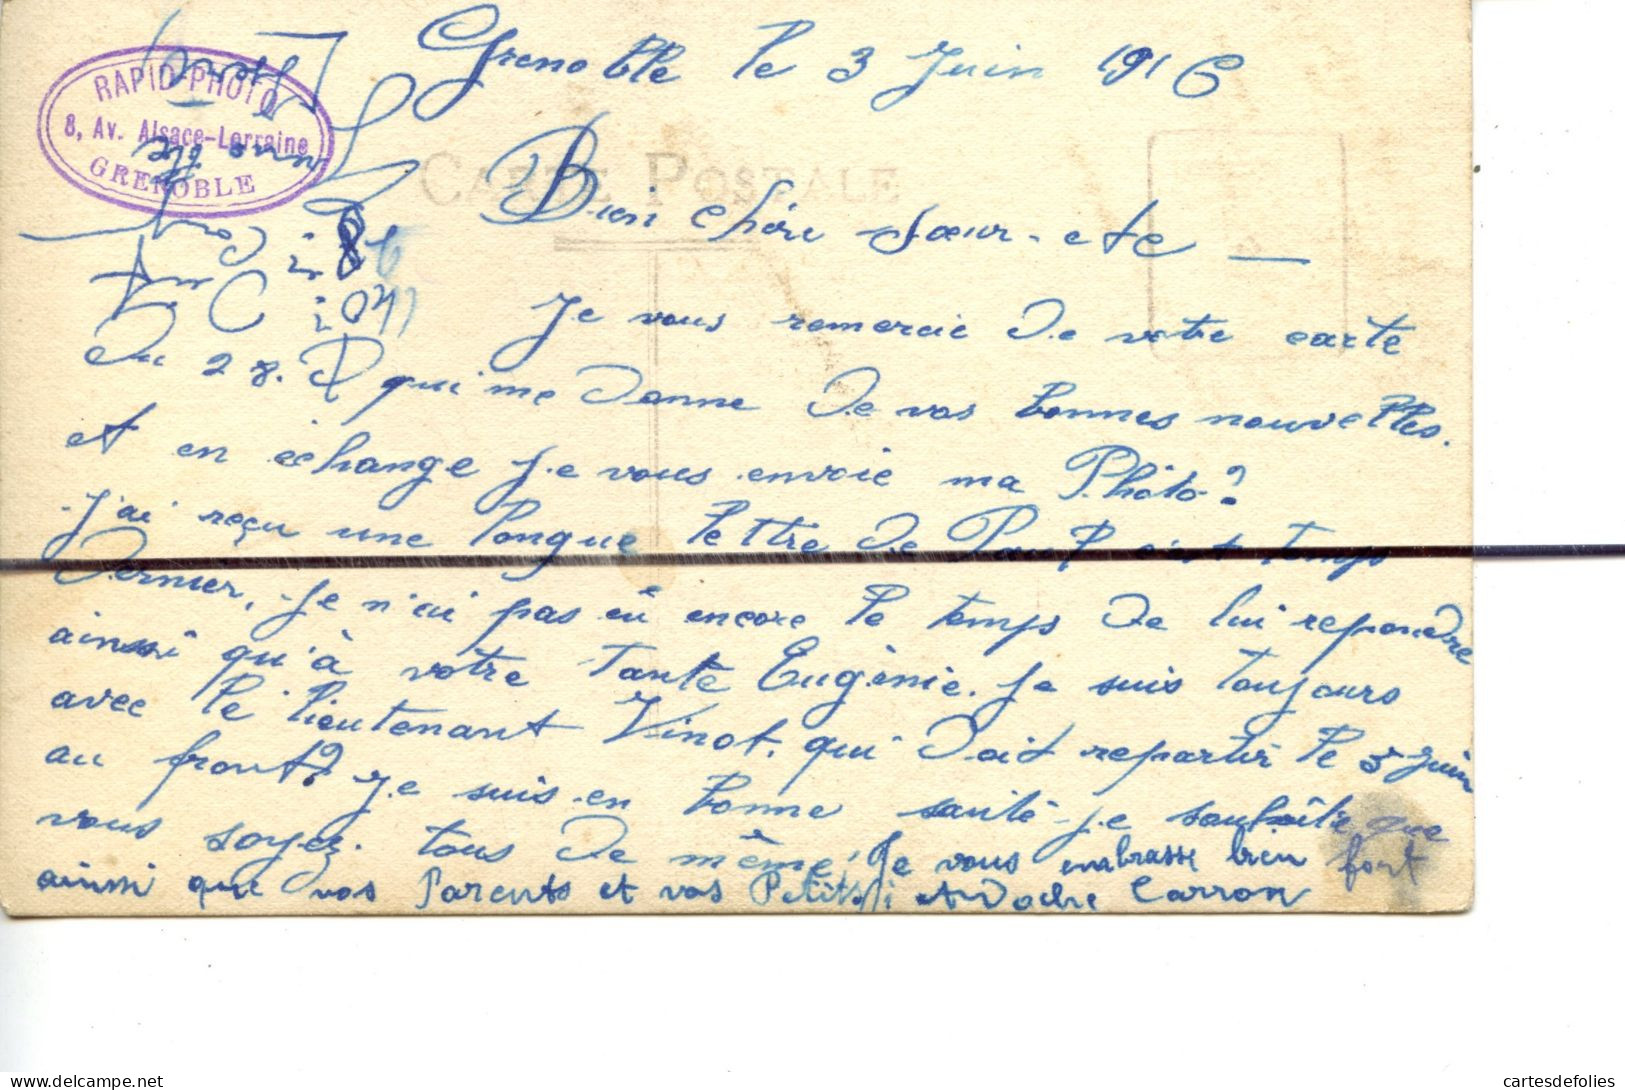 Grenoble le 3 Juin 1916
RAPID-PHOTO
8, Av. Alsace-Lorraine
GRENOBLE
CARTE POSTALE
Bien chère sœur - etc
Je vous remercie de votre carte
du 28. qui me donne de vos bonnes nouvelles.
et en échange je vous envoie ma Photo?
J'ai reçu une longue lettre de Paul temps
dernier, je n'ai pas eû encore le temps de lui repondre
ainssi qu'à vôtre Tante Eugènie. je suis toujours
avec le lieutenant Vinot, qui doit repartir le 5 Juin
au front? je suis en bonne santé je souhaite que
vous soyez tous de même! Je vous embrasse bien fort
ainsi que vos Parents et vos Petits Carron
cartesdefolies